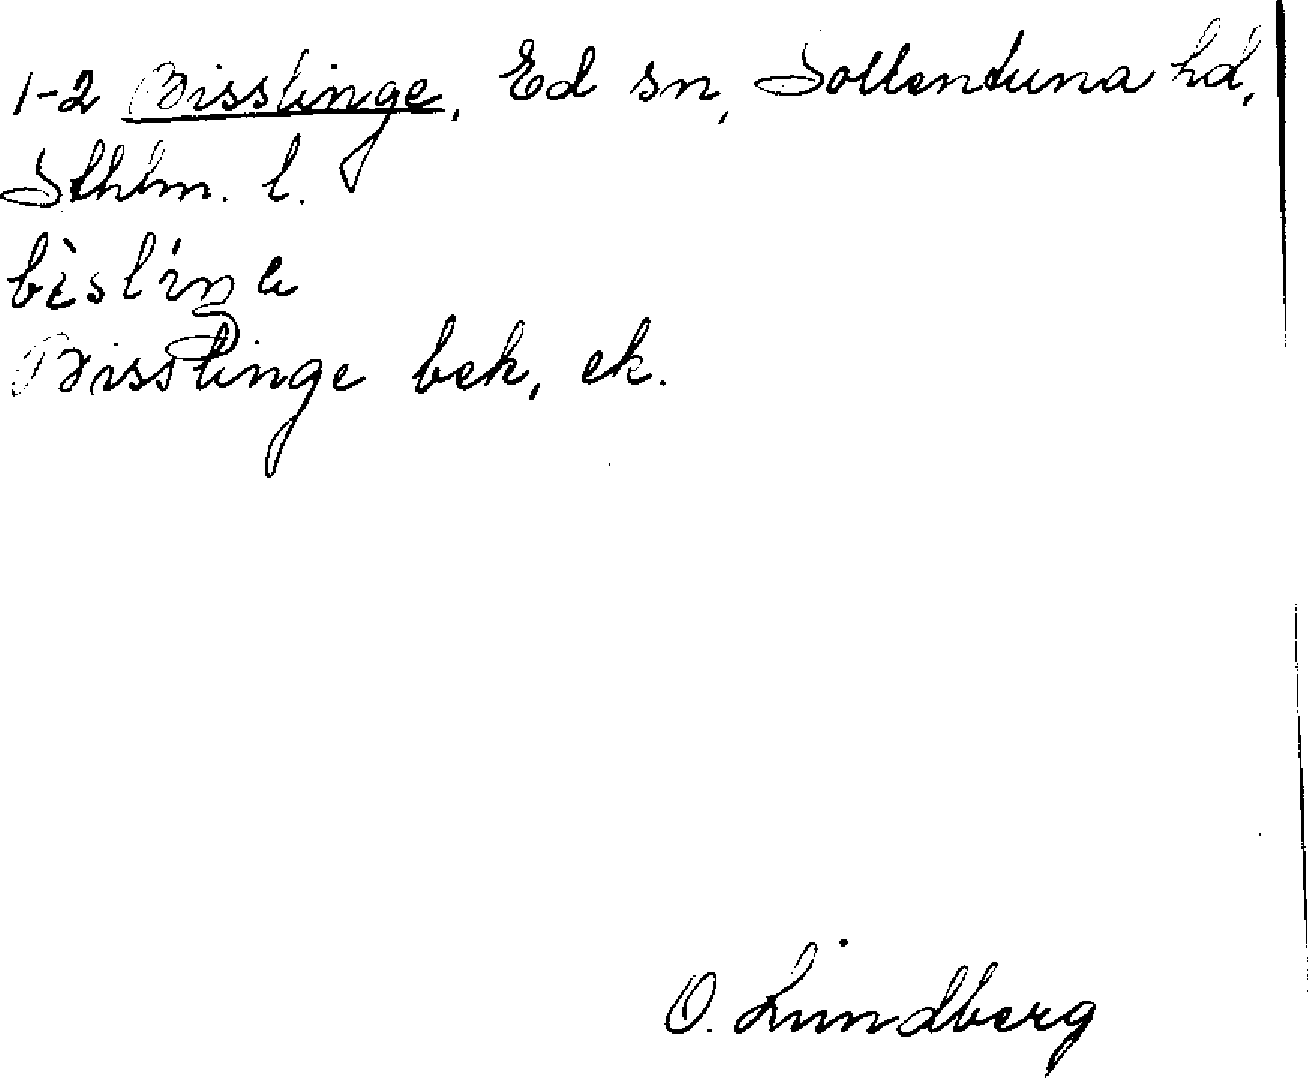 1-2 Bisslinge, Ed sn, Sollentuna hd,
Sthlm. l.
bìslíŋe
Bisslinge bek, ek.
O. Lundberg